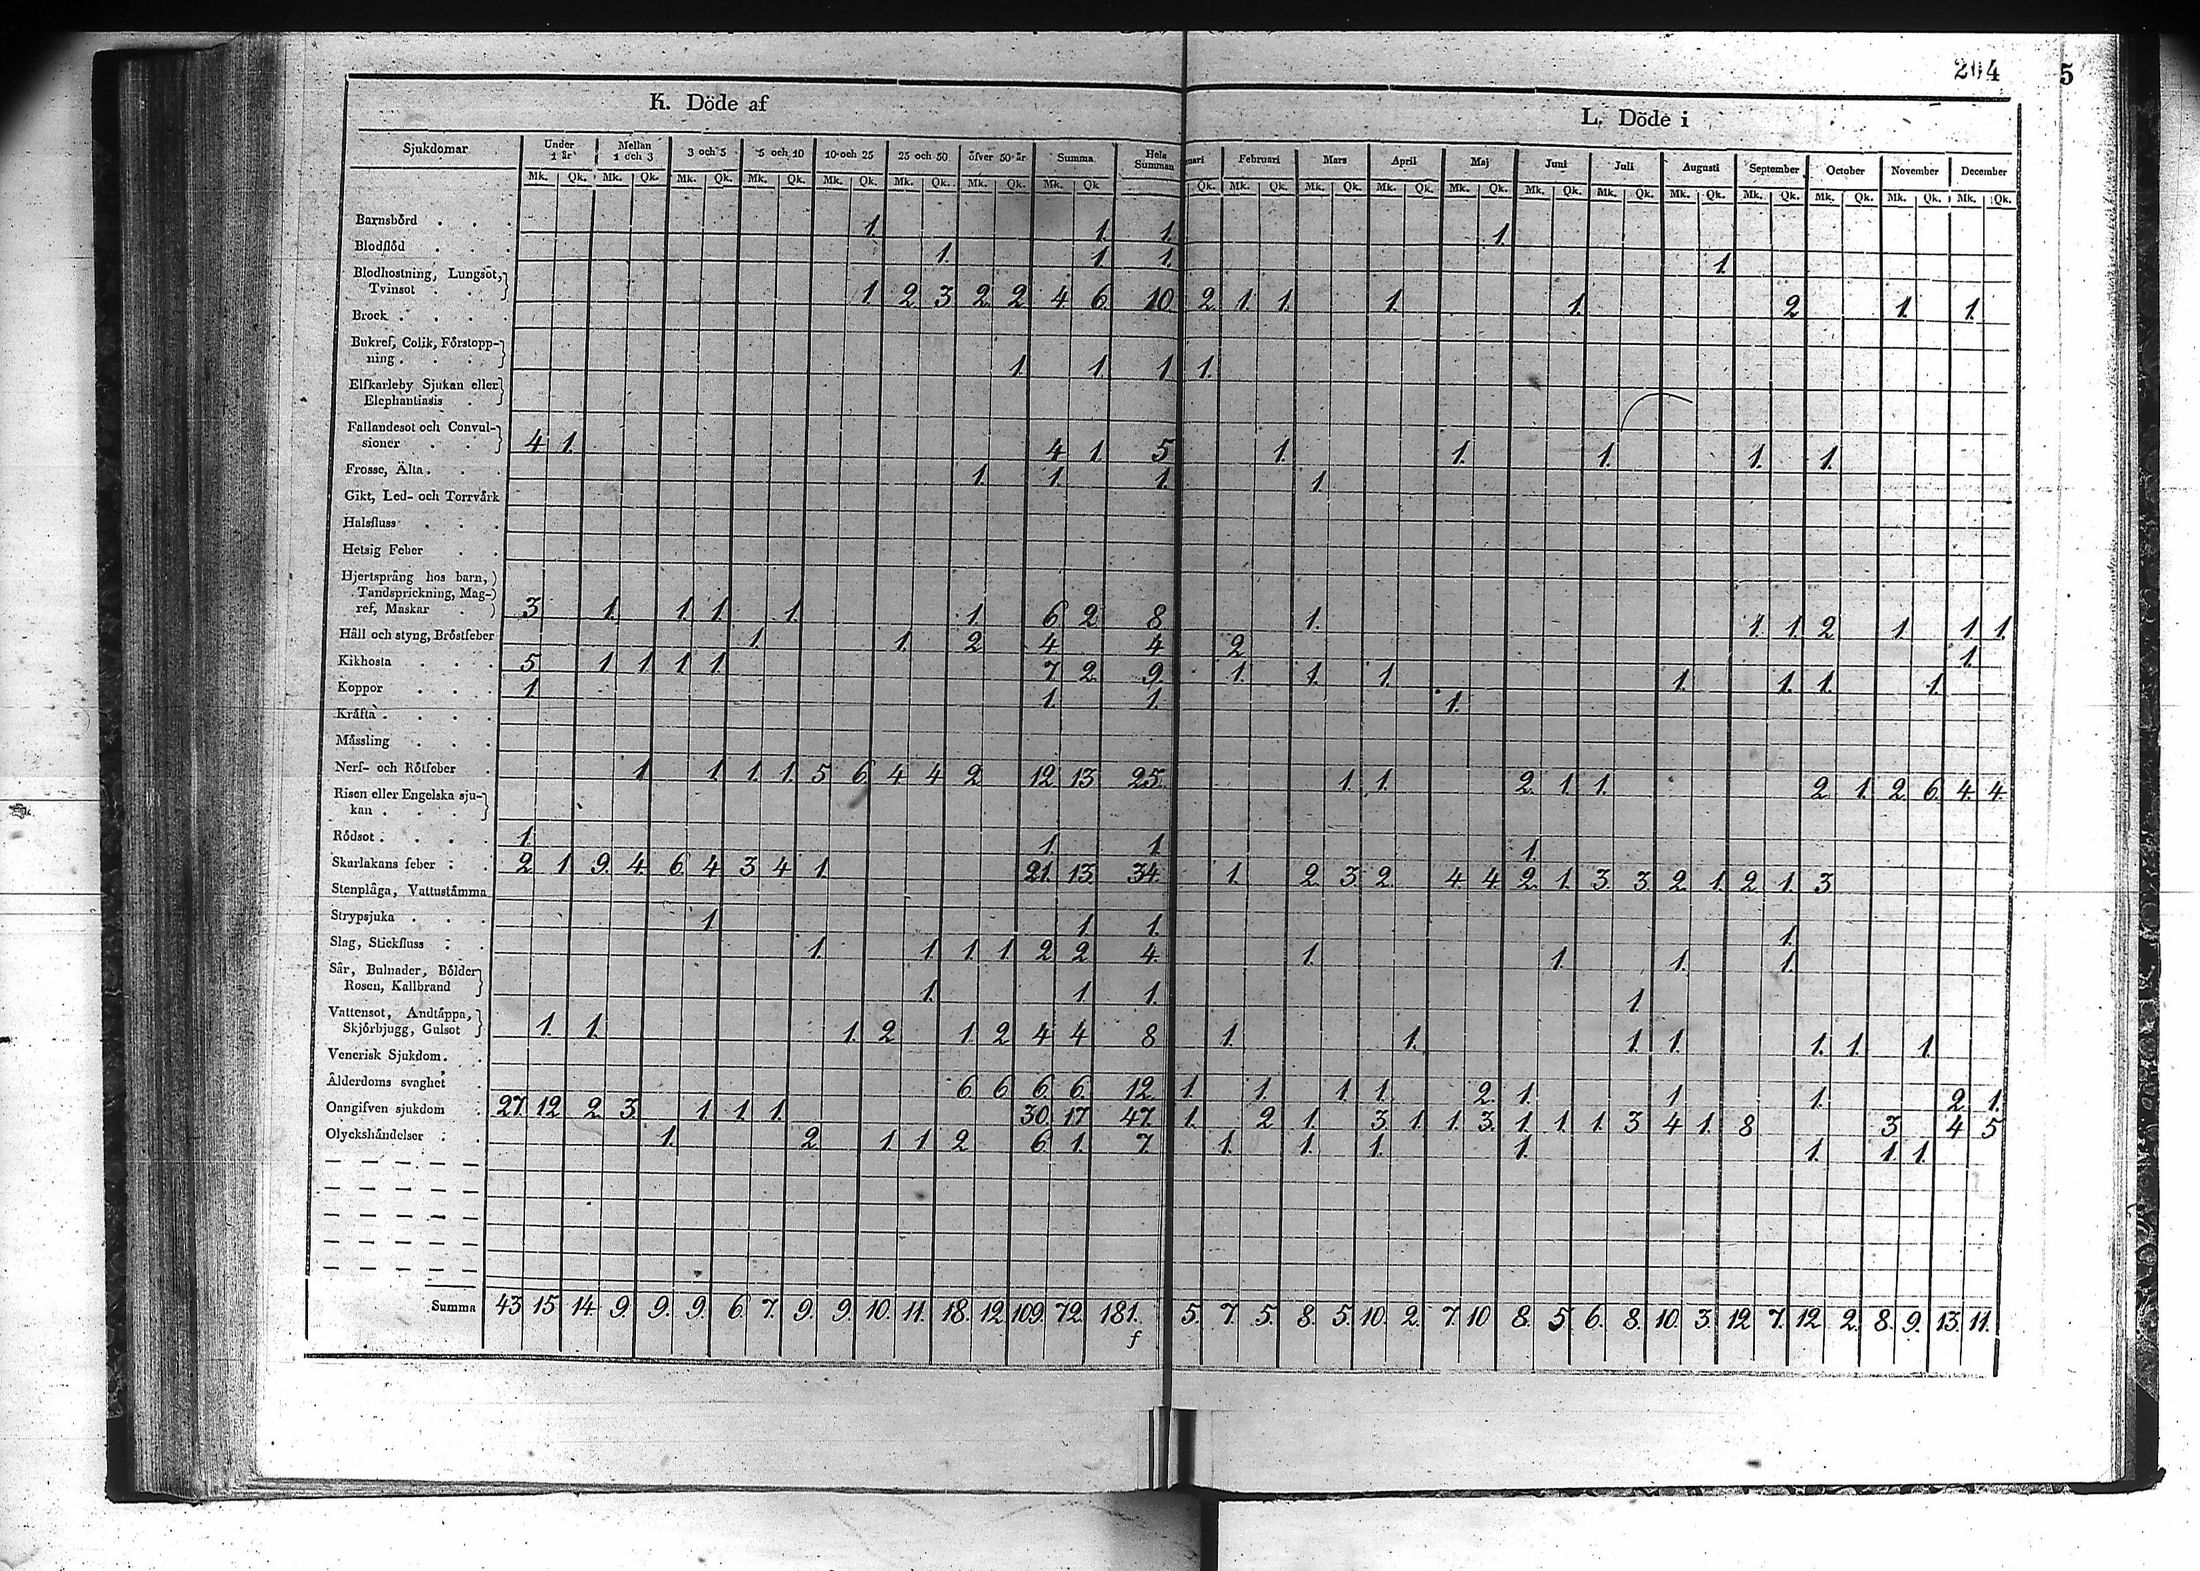 204 5
K. Döde af L. Döde i
Sjukdomar Under 1 år Mellan 1 och 3 3 och 5 5 och 10 10 och 25 25 och 50 öfver 50 år Summa Hela Summan uari Februari Mars April Maj Juni Juli Augusti September October November December
Mk. Qk. Mk. Qk. Mk. Qk. Mk. Qk. Mk. Qk. Mk. Qk. Mk. Qk. Mk. Qk Qk. Mk. Qk. Mk. Qk. Mk. Qk. Mk. Qk. Mk. Qk. Mk. Qk. Mk. Qk. Mk. Qk. Mk. Qk. Mk. Qk. Mk. Qk.
Barnsbörd . . . 1. 1. 1. 1.
Blodflöd . . . 1. 1 1. 1.
Blodhostning, Lungsot,
Tvinsot . . . 1 2 3 2. 2 4. 6 10. 2. 1. 1. 1. 1. 2 1. 1.
Brock . . . .
Bukref, Colik, Förstopp-
ning . . . 1. 1. 1 1.
Elfkarleby Sjukan eller
Elephantiasis .
Fallandesot och Convul-
sioner . . 4 1. 4 1. 5 1. 1. 1. 1. 1.
Frosse, Älta . . . 1. 1. 1. 1.
Gikt, Led- och Torrvärk
Halsfluss . . .
Hetsig Feber . .
Hjertsprång hos barn,
Tandsprickning, Mag-
ref, Maskar . 3 1. 1. 1. 1. 1. 6 2 8 1. 1. 1 2 1. 1. 1.
Håll och styng, Bröstfeber 1. 1. 2 4 4 2 1.
Kikhosta . . . 5. 1. 1 1. 1. 7 2. 9. 1. 1. 1. 1. 1. 1. 1.
Koppor . . . 1. 1. 1. 1.
Kräfta . . . .
Mässling . . .
Nerf- och Rötfeber . 1 1. 1. 1. 5 6 4 4 2 12. 13. 25. 1. 1. 2. 1. 1. 2. 1. 2. 6. 4. 4.
Risen eller Engelska sju-
kan . . . .
Rödsot . . . . 1. 1. 1. 1.
Skarlakans feber : . 2 1 9. 4. 6 4 3 4 1. 21. 13. 34. 1. 2. 3. 2. 4. 4. 2. 1. 3. 3. 2. 1. 2. 1. 3
Stenplåga, Vattustämma
Strypsjuka . . . 1 1 1. 1.
Slag, Stickfluss : . 1. 1. 1. 1 2 2 4. 1. 1. 1. 1.
Sår, Bulnader, Bölder
Rosen, Kallbrand 1. 1 1. 1
Vattensot, Andtäppa,
Skjörbjugg, Gulsot 1. 1. 1. 2 1. 2 4 4 8 1. 1. 1. 1. 1. 1. 1.
Venerisk Sjukdom . .
Ålderdoms svaghet . 6 6 6. 6. 12. 1. 1. 1. 1. 2. 1. 1 1. 2. 1.
Oangifven sjukdom . 27. 12 2. 3. 1. 1. 1. 30. 17 47. 1. 2 1. 3. 1. 1. 3. 1. 1. 1. 3 4 1. 8 3. 4 5
Olyckshändelser : . 1. 2. 1. 1 2 6. 1. 7. 1. 1. 1. 1. 1. 1. 1.
Summa 43 15 14. 9. 9. 9. 6 7. 9. 9. 10. 11. 18. 12 109. 72. 181. 5. 7. 5. 8. 5. 10. 2. 7. 10 8. 5 6. 8. 10. 3. 12 7. 12 2. 8. 9. 13. 11.